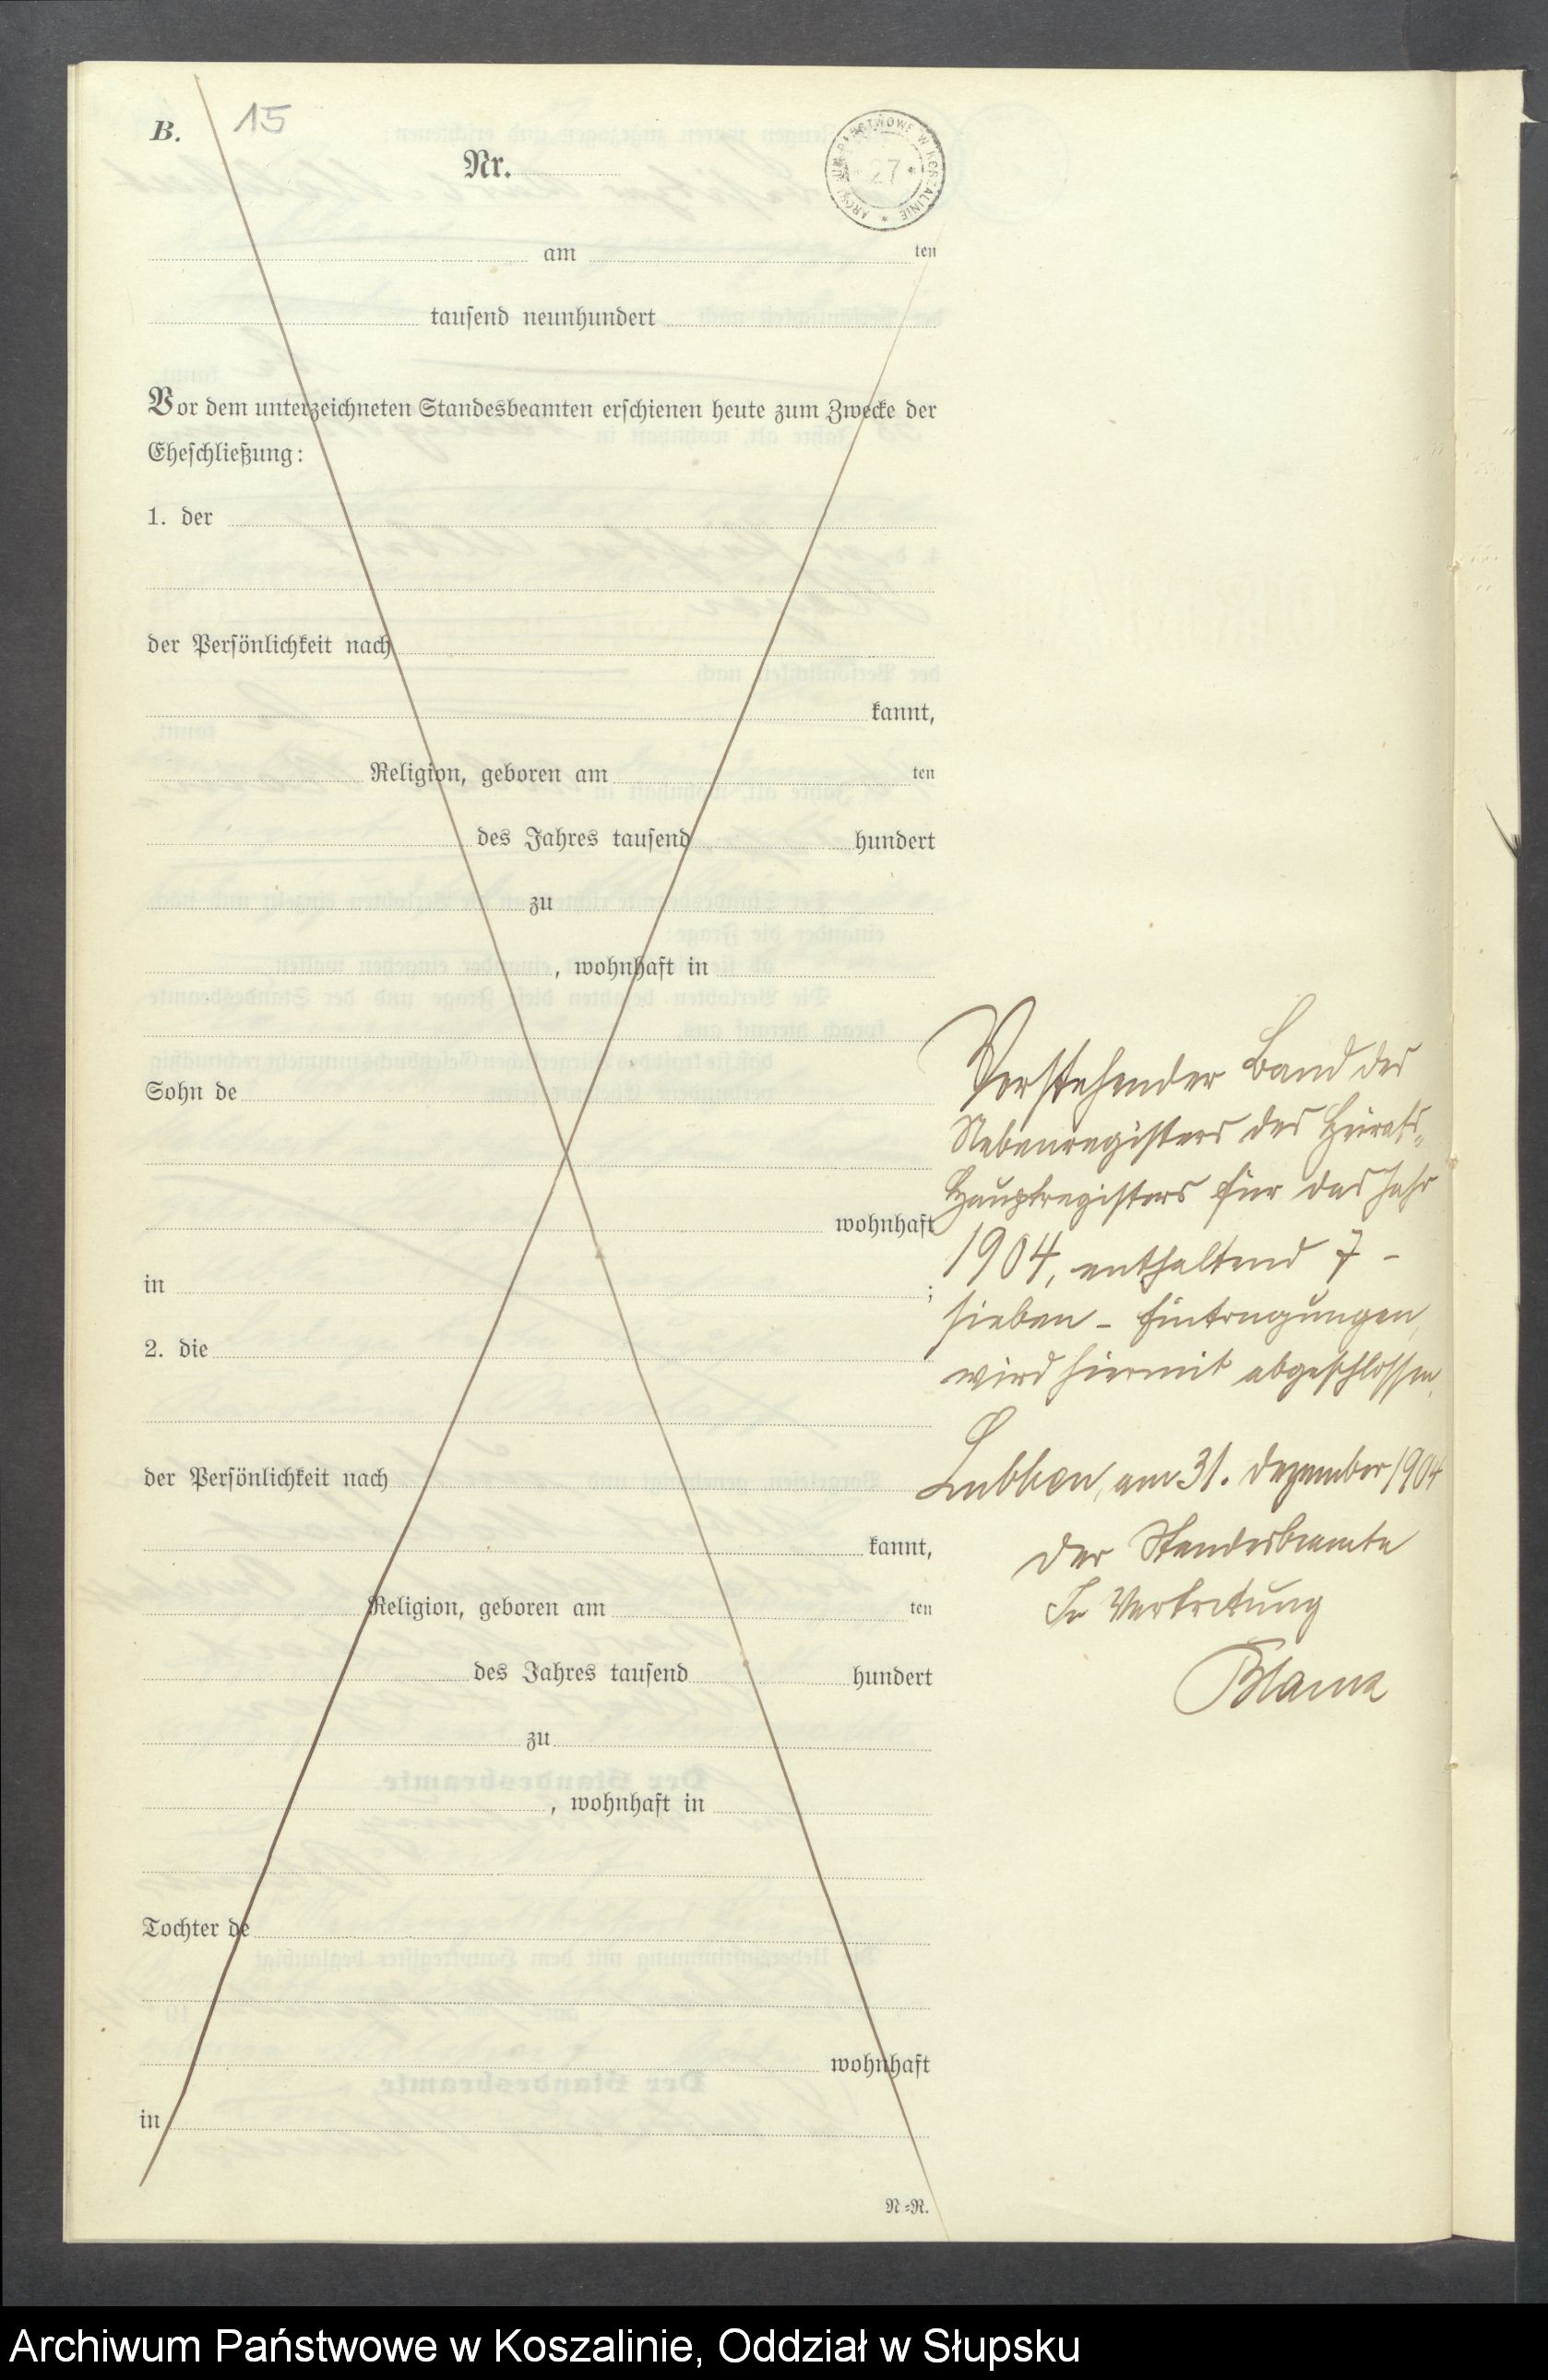 B.
15
Nr.
ARCHIWUM PAŃSTWOWE W KOSZALINIE * 27 *
am ten
tausend neunhundert
Vor dem unterzeichneten Standesbeamten erschienen heute zum Zwecke der
Eheschließung:
1. der
der Persönlichkeit nach
kannt,
Religion, geboren am ten
des Jahres tausend hundert
zu
, wohnhaft in
Sohn de
wohnhaft
in ;
2. die
der Persönlichkeit nach
kannt,
Religion, geboren am ten
des Jahres tausend hundert
zu
, wohnhaft in
Tochter de
wohnhaft
in
N=R.
Vorstehender Band des
Nebenregisters des Heirats-
Hauptregisters für das Jahr
1904, enthaltend 7 -
sieben - Eintragungen,
wird hiermit abgeschlossen.
am 31. Dezember 1904
Der Standesbeamte
In Vertretung
Archiwum Państwowe w Koszalinie, Oddział w Słupsku